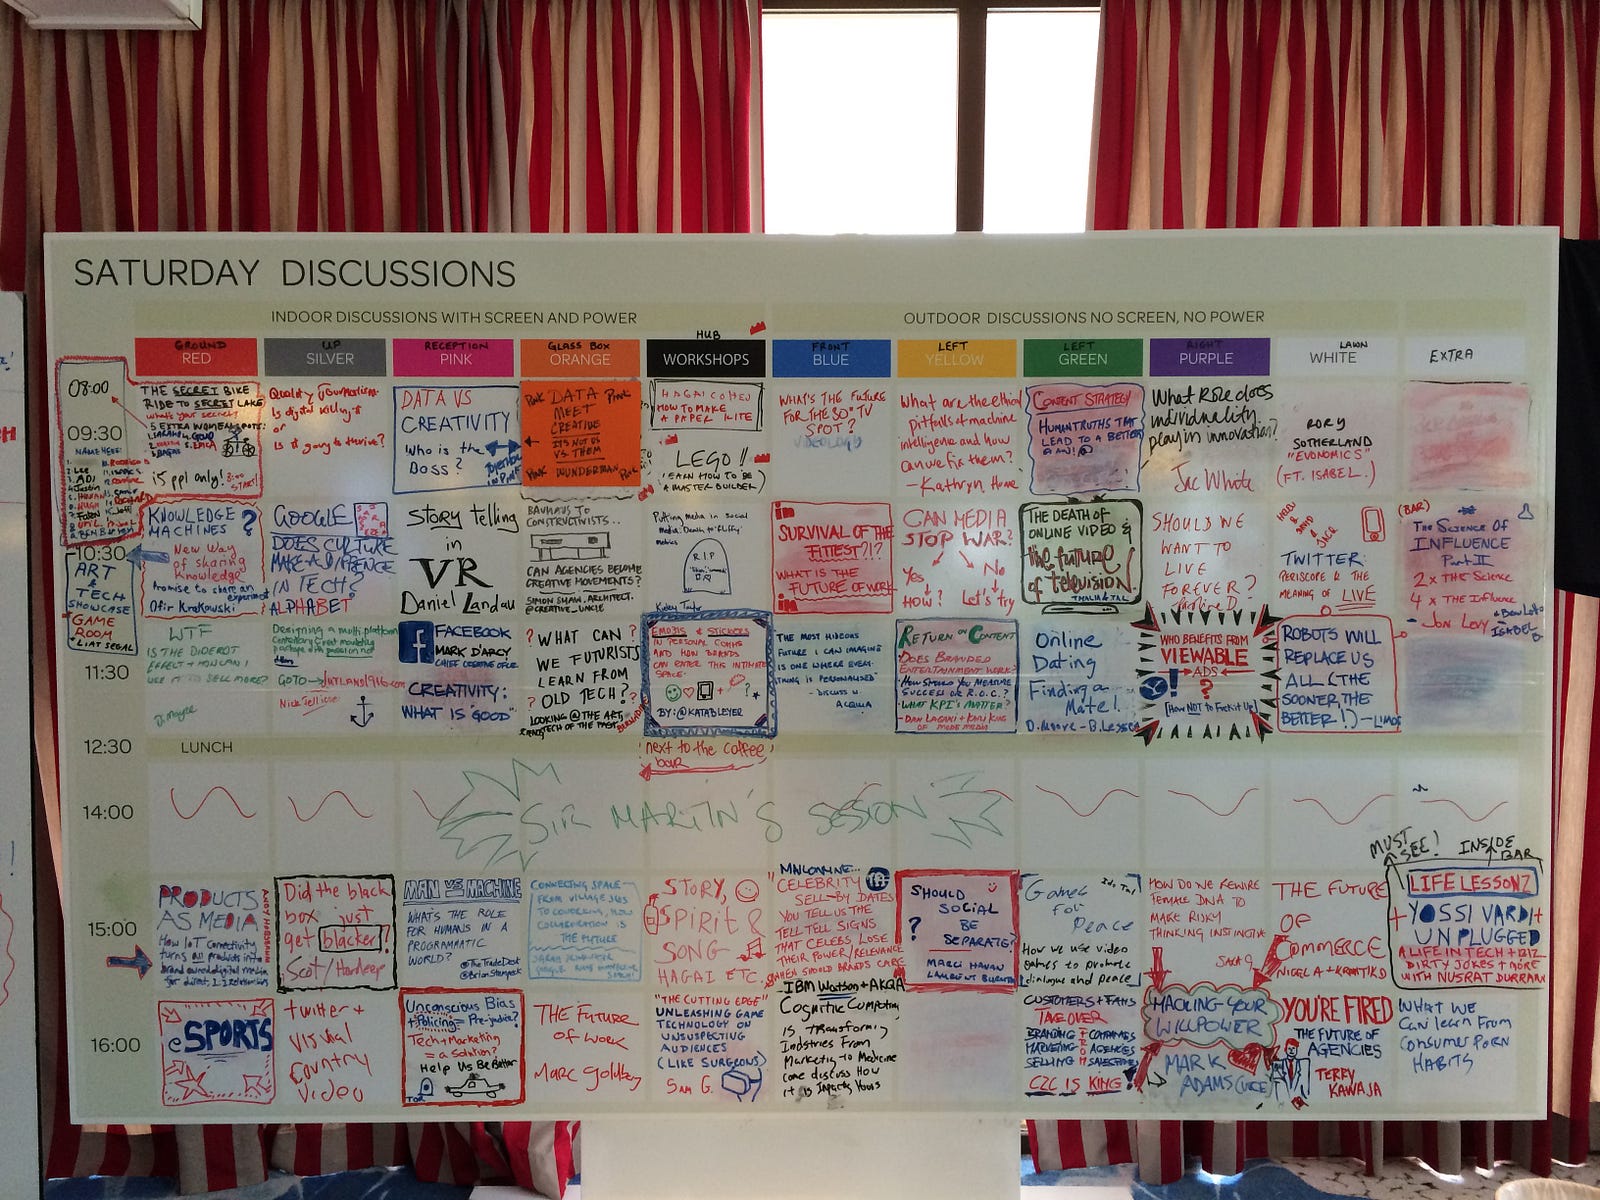 SATURDAY DISCUSSIONS
INDOOR DISCUSSIONS WITH SCREEN AND POWER
OUTDOOR DISCUSSIONS NO SCREEN, NO POWER
GROUND
RED
UP
SILVER
RECEPTION
PINK
GLASS BOX
ORANGE
HUB
WORKSHOPS
FRONT
BLUE
LEFT
YELLOW
LEFT
GREEN
RIGHT
PURPLE
LAWN
WHITE
EXTRA
08:00
09:30
THE SECRET BIKE
RIDE TO SECRET LAKE
what's your secret?
5 EXTRA WOMEN SPOTS:
NAME HERE:
15 ppl only!
START!
Quality Journalism:
Is digital killing it
or
Is it going to thrive?
DATA VS
CREATIVITY
Who is the
Boss?
DATA
MEET
CREATIVE
IT'S NOT US
VS THEM
WUNDERMAN
HAGAI COHEN
HOW TO MAKE
A PAPER KITE
LEGO!!
(LEARN HOW TO BE
A MASTER BUILDER)
WHAT'S THE FUTURE
FOR THE 30" TV
SPOT?
VIDEOLOGY
What are the ethical
pitfalls of machine
intelligence and how
can we fix them?
- Kathryn Hume
CONTENT STRATEGY
HUMAN TRUTHS THAT
LEAD TO A BETTER
What Role does
individuality
play in innovation?
Jac White
RORY
SUTHERLAND
"EVONOMICS"
(FT. ISABEL.)
10:30
ART
&
TECH
SHOWCASE
GAME
ROOM
LIAT SEGAL
KNOWLEDGE
MACHINES ?
New Way
of sharing
knowledge
Promise to share an
experiment
Ofir Krakowski
GOOGLE
DOES CULTURE
MAKE A DIFFERENCE
IN TECH?
ALPHABET
Story telling
in
VR
Daniel Landau
BAUHAUS TO
CONSTRUCTIVISTS..
CAN AGENCIES BECOME
CREATIVE MOVEMENTS?
SIMON SHAW, ARCHITECT.
@CREATIVE_UNCLE
Putting media in social
media. Death to fluffy
metrics
R.I.P
in
SURVIVAL OF THE
FITTEST?!?
WHAT IS THE
FUTURE OF WORK
in
CAN MEDIA
STOP WAR?
Yes
No
HOW?
Let's try
THE DEATH OF
ONLINE VIDEO &
the future
of television.
THALIA & TAL
SHOULD WE
WANT TO
LIVE
FOREVER?
Caroline D.
TWITTER:
PERISCOPE & THE
MEANING OF LIVE
(BAR)
The Science OF
INFLUENCE
Part II
2 x The Science
4 x The Influence
- Jon Levy
11:30
WTF
IS THE DIDEROT
EFFECT & HOW CAN I
USE IT TO SELL MORE?
Designing a multi platform
GOTO → JUTLAND1916.com
Nick Tellicue
f
FACEBOOK
MARK D'ARCY
CHIEF CREATIVE OFFICER
CREATIVITY:
WHAT IS "GOOD"
? WHAT CAN ?
WE FUTURISTS
LEARN FROM
OLD TECH?
LOOKING @ THE ART,
& TECH OF THE PAST
EMOJIS & STICKERS
IN PERSONAL COMMS
AND HOW BRANDS
CAN ENTER THIS INTIMATE
SPACE.
BY: @KATABLEYER
next to the coffee
bar
THE MOST HIDEOUS
FUTURE I CAN IMAGINE
IS ONE WHERE EVERY-
THING IS PERSONALISED"
- DISCUSS W.
RETURN ON CONTENT
- DOES BRANDED
ENTERTAINMENT WORK?
- HOW SHOULD YOU MEASURE
SUCCESS OR R.O.C.?
- WHAT KPI'S MATTER?
Online
Dating
Finding a
Mate!
WHO BENEFITS FROM
VIEWABLE
ADS
[HOW NOT TO Fuck it Up]
ROBOTS WILL
REPLACE US
ALL (THE
SOONER, THE
BETTER!)
12:30
LUNCH
14:00
SIR MARTIN'S SESSION
15:00
PRODUCTS
AS MEDIA
ANDY HOBSBAWM
How IoT Connectivity
turns all products into
brand owned digital media
Did the black
box just
get blacker?!
Scot/Hardeep
MAN VS MACHINE
WHAT'S THE ROLE
FOR HUMANS IN A
PROGRAMMATIC
WORLD?
@TheTradeDesk
@BrianStempeck
CONNECTING SPACE -
FROM VILLAGE 365
TO COWORKING, HOW
COLLABORATION IS
THE FUTURE
STORY,
SPIRIT &
SONG
HAGAI ETC.
CELEBRITY
SELL-BY DATES
YOU TELL US THE
TELL TELL SIGNS
THAT CELEBS LOSE
THEIR POWER/RELEVANCE
WHEN SHOULD BRANDS CARE
SHOULD
SOCIAL
BE
SEPARATE?
?
Games
for
Peace
How we use video
games to promote
dialogue and peace
HOW DO WE REWIRE
FEMALE DNA TO
MAKE RISKY
THINKING INSTINCTIVE
THE FUTURE
OF
COMMERCE
MUST
SEE!
INSIDE
BAR
LIFE LESSONZ
YOSSI VARDI
UNPLUGGED
A LIFE IN TECH + BIZ
DIRTY JOKES + MORE
WITH NUSRAT DURRANI
16:00
eSPORTS
twitter +
visual
country
video
Unconscious Bias
+ Policing = Pre-judice?
Tech + Marketing
= a Solution?
Help Us Be Better
THE FUTURE
of WORK
Marc Goldberg
"THE CUTTING EDGE"
UNLEASHING GAME
TECHNOLOGY ON
UNSUSPECTING
AUDIENCES
(LIKE SURGEONS)
Sam G.
IBM Watson + AKQA
Cognitive Computing
is transforming
Industries From
Marketing to Medicine
come discuss How
it is Impacts Yours
CUSTOMERS + FANS
TAKE OVER
BRANDING FROM COMPANIES
MARKETING AGENCIES
C2C IS KING
HACKING YOUR
WILLPOWER
MARK
ADAMS (VICE)
YOU'RE FIRED
THE FUTURE OF
AGENCIES
TERRY
KAWAJA
WHAT WE
Can learn From
Consumer Porn
HABITS